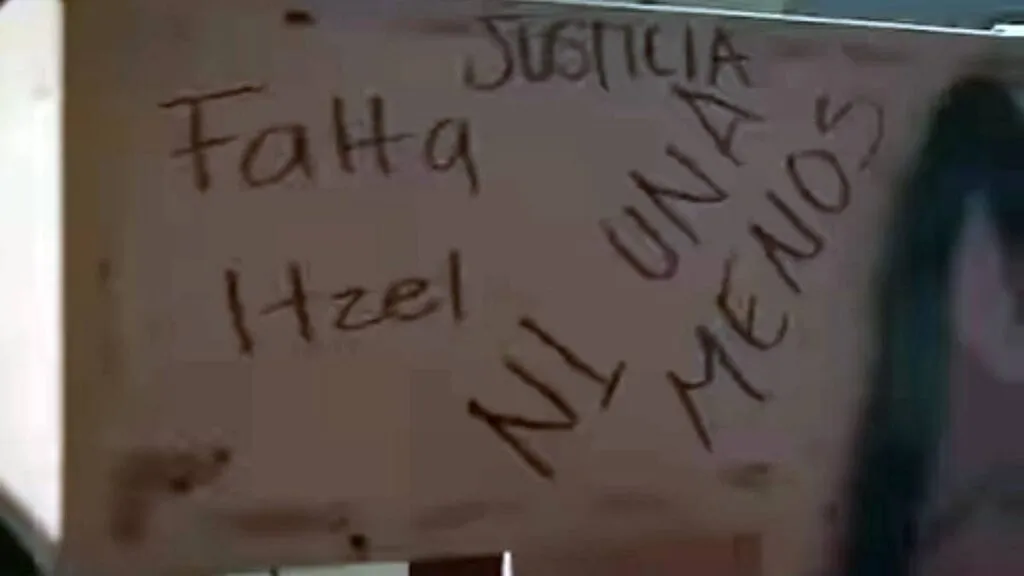 JUSTICIA
Falta
Itzel
NI UNA
MENOS